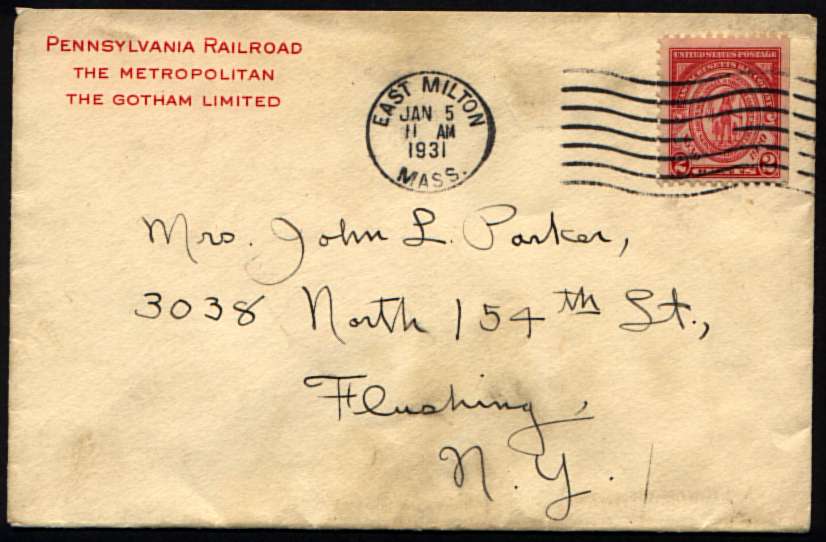 PENNSYLVANIA RAILROAD
THE METROPOLITAN
THE GOTHAM LIMITED
EAST MILTON
JAN 5
11 AM
1931
MASS.
UNITED STATES POSTAGE
2 2
Mrs. John L. Parker,
3038 North 154th St.,
Flushing,
N. Y.